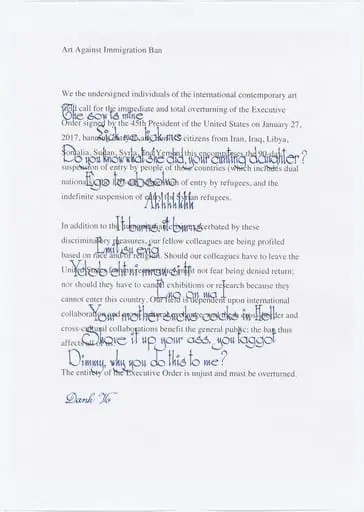 Art Against Immigration Ban
We the undersigned individuals of the international contemporary art
call for the immediate and total overturning of the Executive
The sow is mine
Order signed by the 45th President of the United States on January 27,
2017, citizens from Iraq, Libya,
lick me
Somalia, Sudan, Syria, and Yemen
Do you know what she did, your cunting daughter?
suspension of entry by people of those countries (which includes dual
Ego te absolvo
of entry by refugees, and the
Ahhhhhh
indefinite suspension of entry for Syrian refugees.
In addition to the exacerbated by these
It burns, it burns
discriminatory measures, our fellow colleagues are being profiled
Emit su evig
based on race and/or religion. Should our colleagues have to leave the
not fear being denied return;
nor should they have to cancel exhibitions or research because they
Eno on ma I
cannot enter this country. Our field is dependent upon international
Your mother sucks cocks in Hell
and
cross-cultural collaborations benefit the general public; the ban thus
Shove it up your ass, you faggot
affects all of us.
Dimmy, why you do this to me?
The entirety of the Executive Order is unjust and must be overturned.
Danh Vo